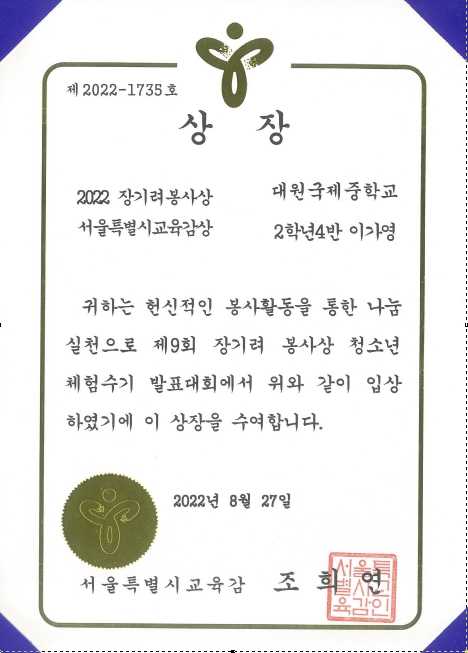 제 2022-1735 호
상 장
2022 장기려봉사상
서울특별시교육감상
대원국제중학교
2학년4반 이가영
귀하는 헌신적인 봉사활동을 통한 나눔
실천으로 제9회 장기려 봉사상 청소년
체험수기 발표대회에서 위와 같이 입상
하였기에 이 상장을 수여합니다.
2022년 8월 27일
서울특별시교육감 조희연
서울특
별시교
육감인